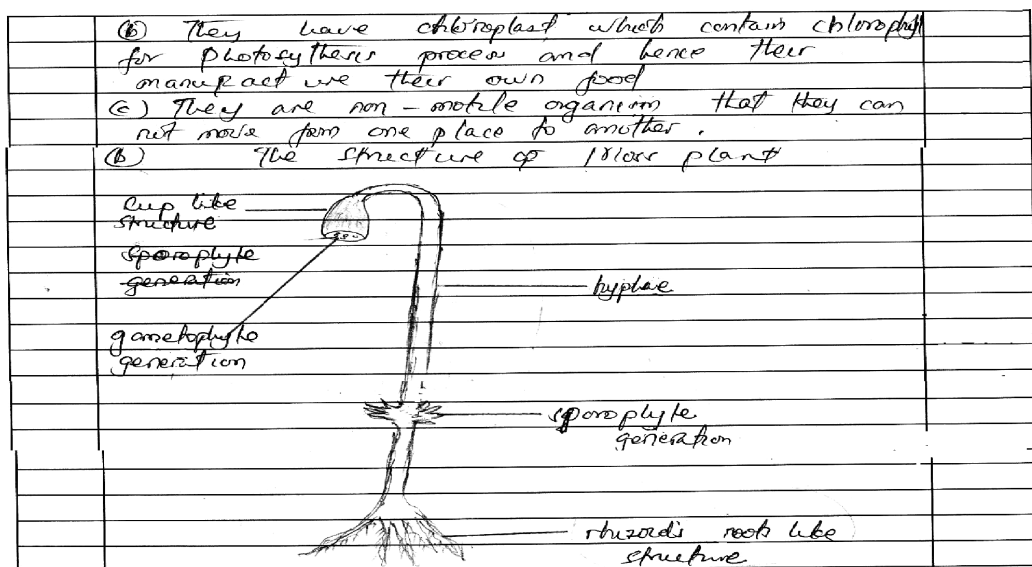 (b) They have chloroplast which contain chlorophyll
for photosythesis process and hence their
manufacture their own food
(c) They are non-motile organism that they can
not move from one place to another.
(b) The structure of Moss plant
Cup like
structure
sporophyte
generation
hyphae
gametophyte
generation
sporophyte
generation
rhizoids roots like
structure